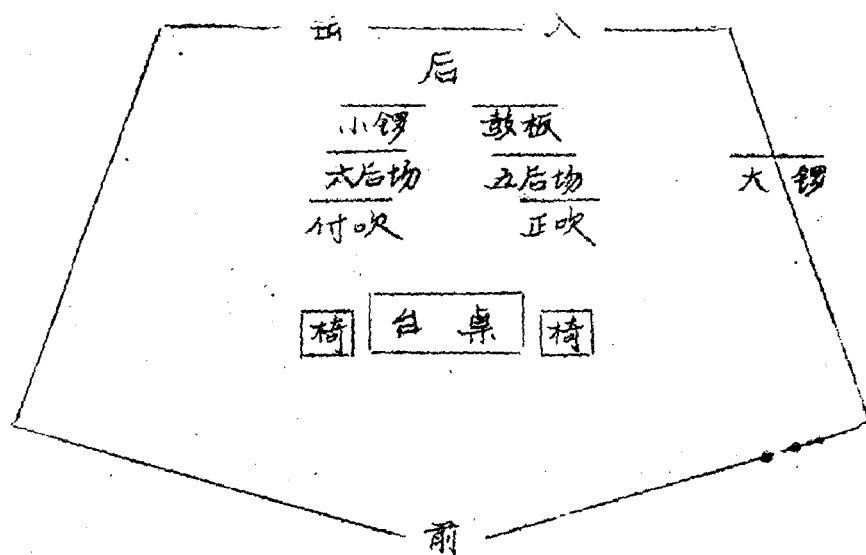 出 入
后
小锣 鼓板
六后场 五后场 大锣
付吹 正吹
椅 台桌 椅
前